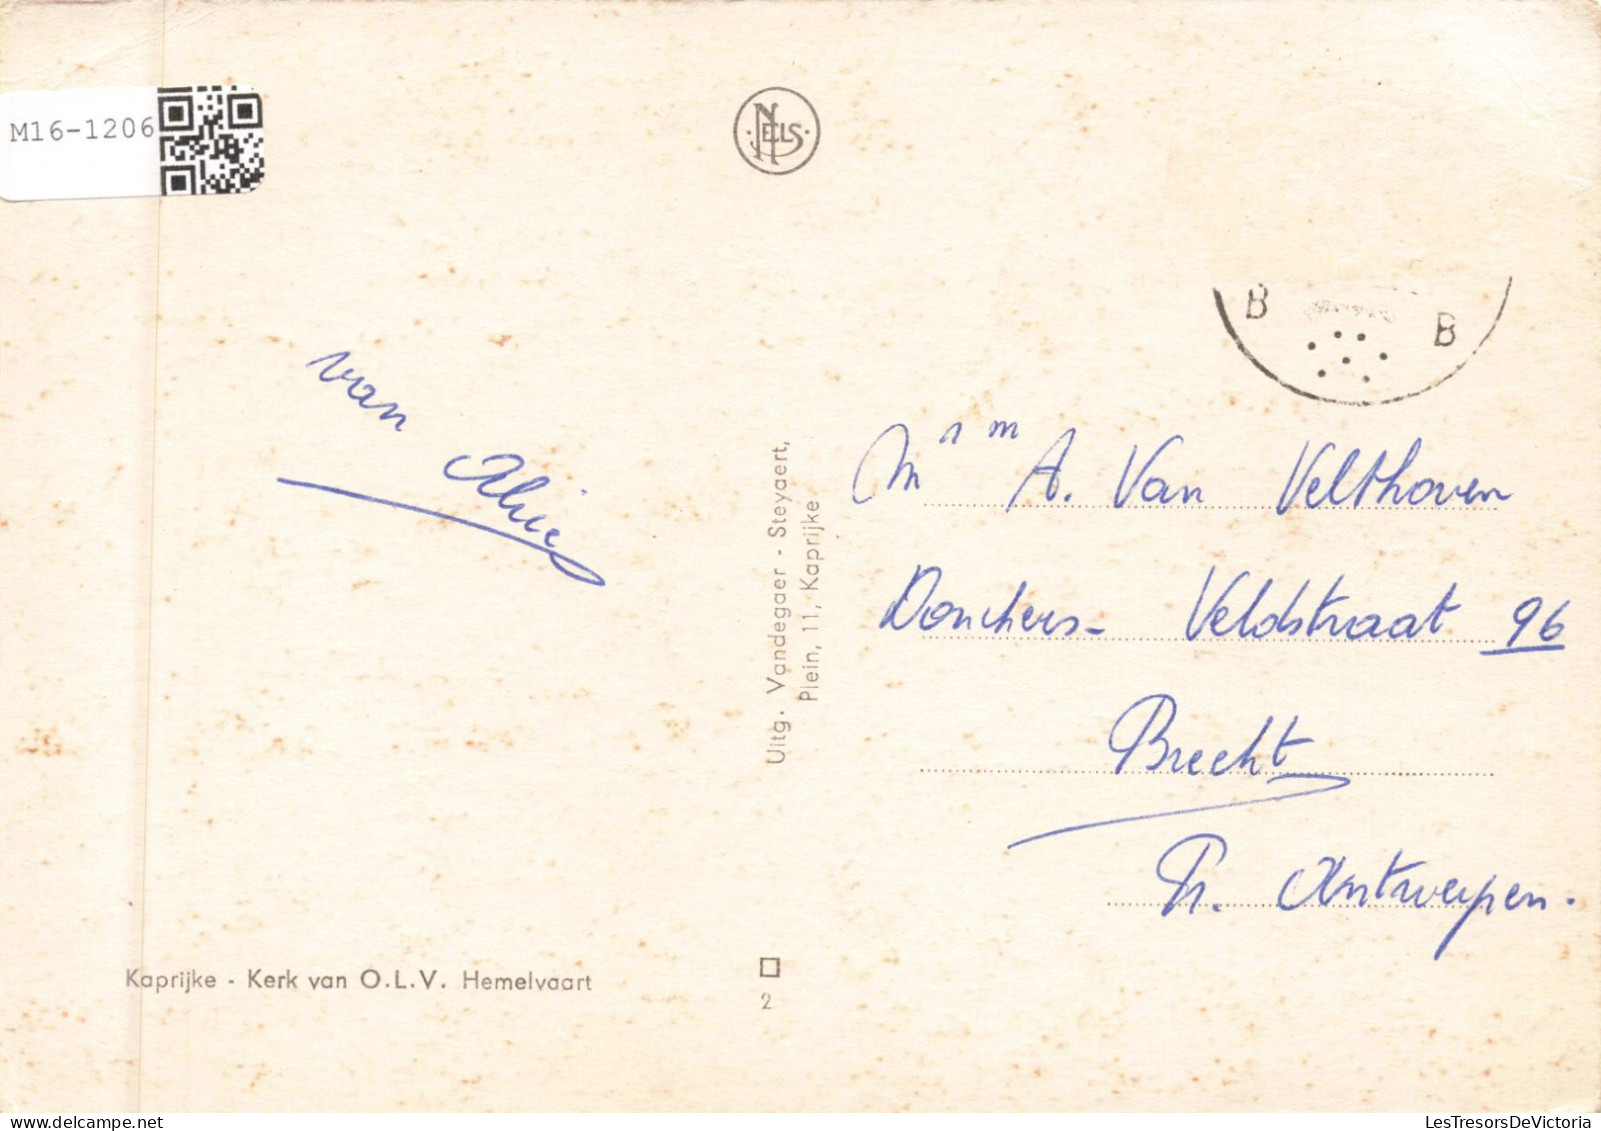 M16-1206
NELS
B B
van Alice
Mʳ ᵐ A. Van Velthoven
Donckers- Veldstraat 96
Brecht
Pr. Antwerpen.
Uitg. Vandegaer - Steyaert,
Plein, 11, Kaprijke
Kaprijke - Kerk van O.L.V. Hemelvaart
2
LesTresorsDeVictoria